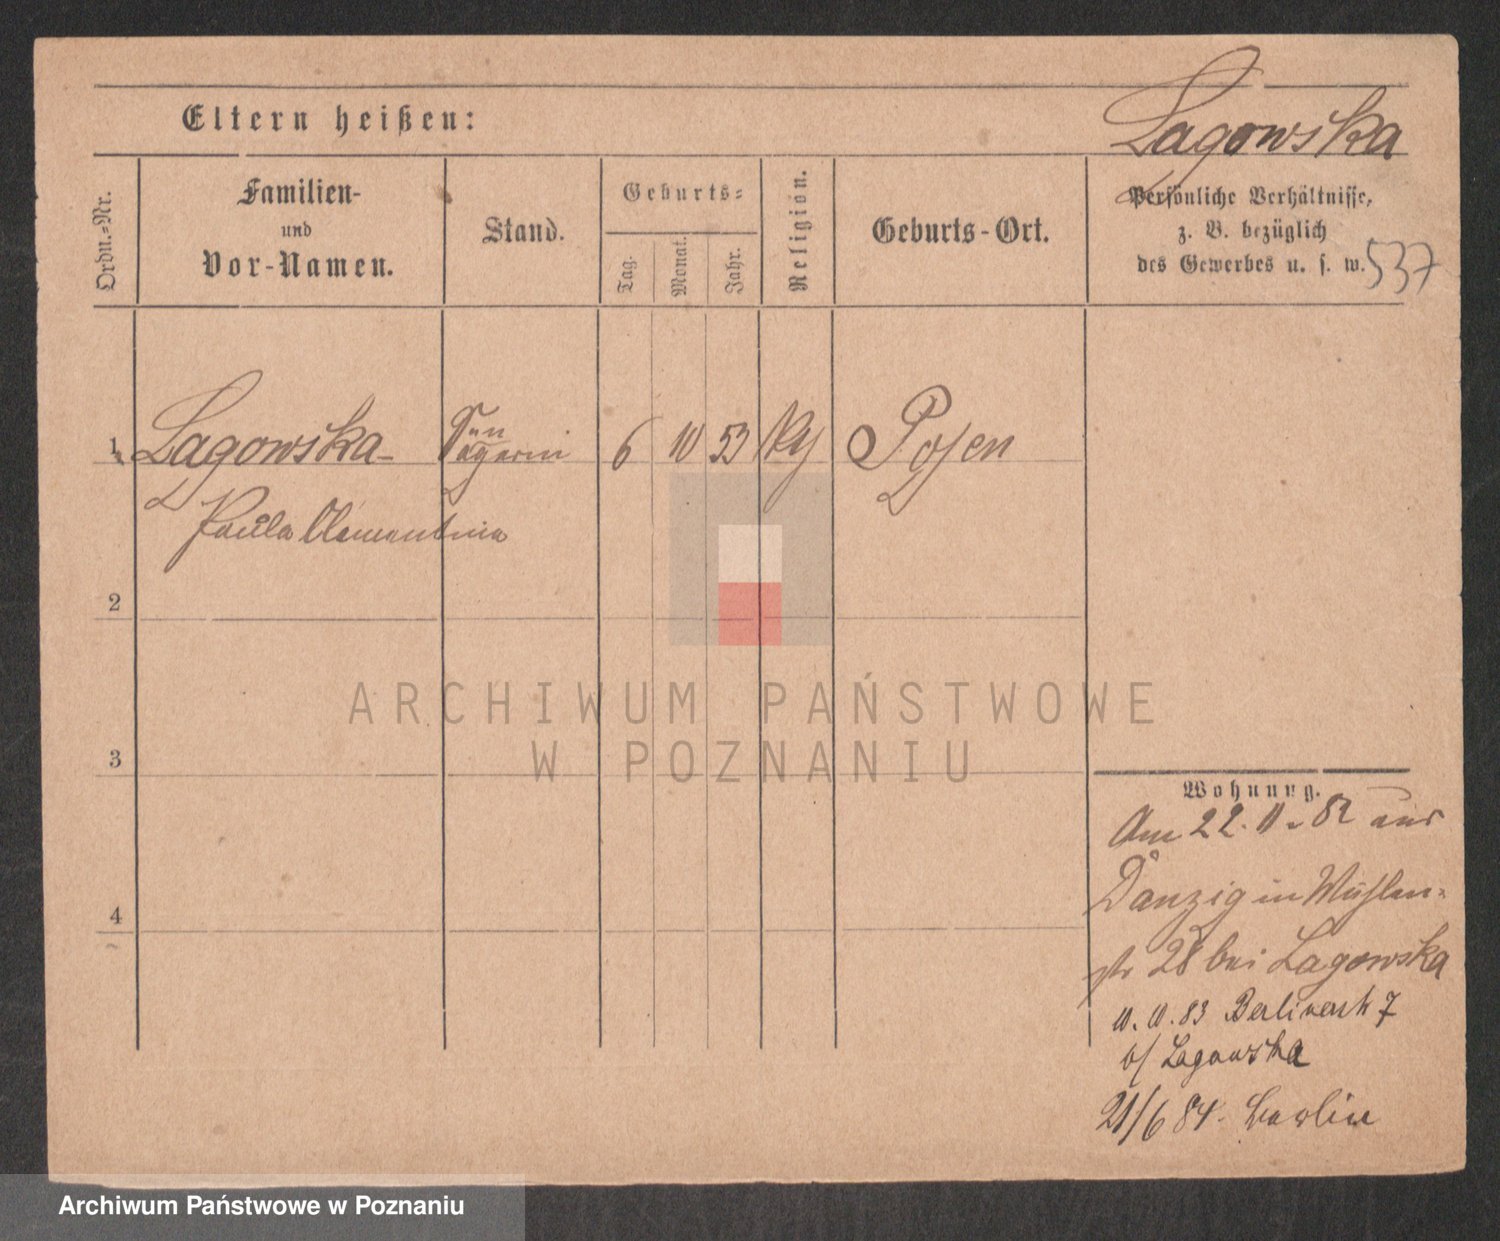 Lagowska
Eltern heißen:
Ordn.-Nr.
Familien-
und
Vor-Namen.
Stand.
Geburts-
Tag.
Monat.
Jahr.
Religion.
Geburts-Ort.
Persönliche Verhältnisse,
z. B. bezüglich
des Gewerbes u. s. w.
537
1 Lagowska 6 10 53 Posen
Paula Clementina
2
3
4
Wohnung.
Am 22. 11. 82 aus
Danzig in Mühlen-
str 28 bei Lagowska
83 Berlinerstr 7
b/ Lagowska
21/6 84. Berlin
ARCHIWUM PAŃSTWOWE
W POZNANIU
Archiwum Państwowe w Poznaniu